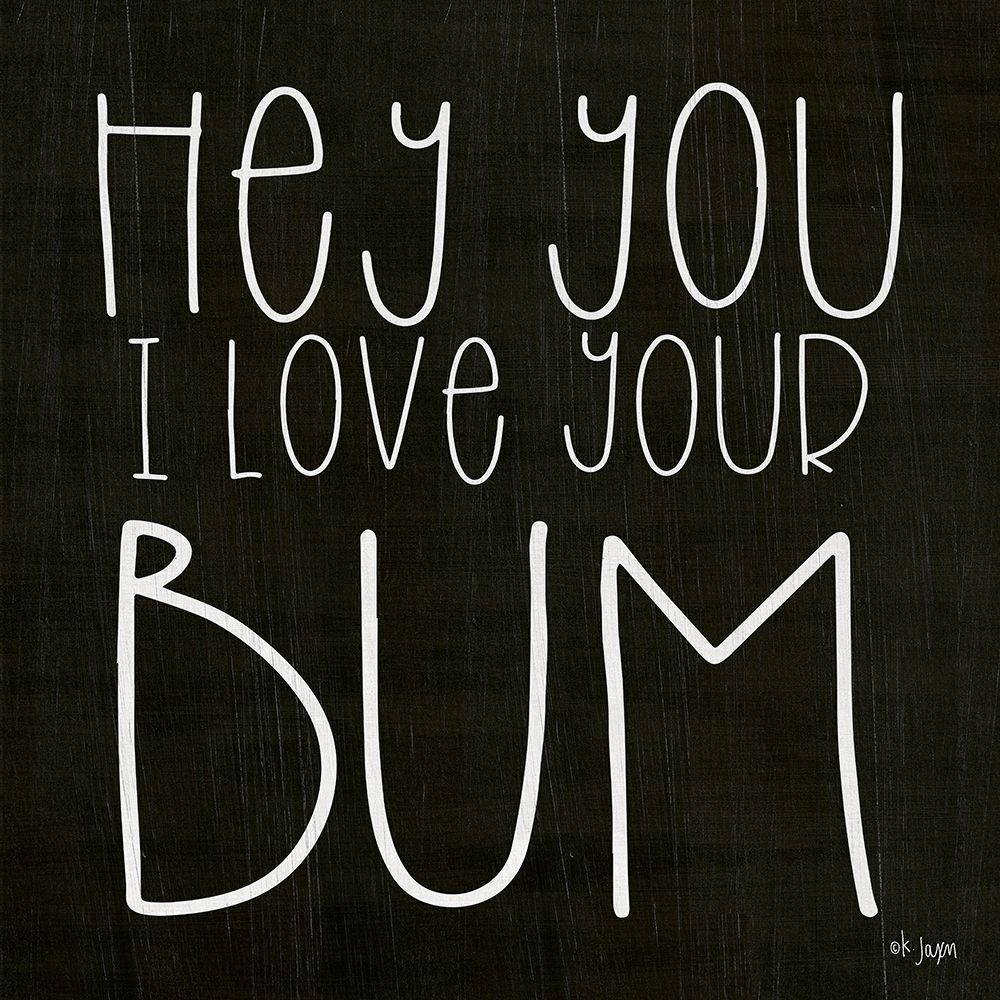 Hey YOU
I LOVe YOUR
BUM
©K. Jaxn